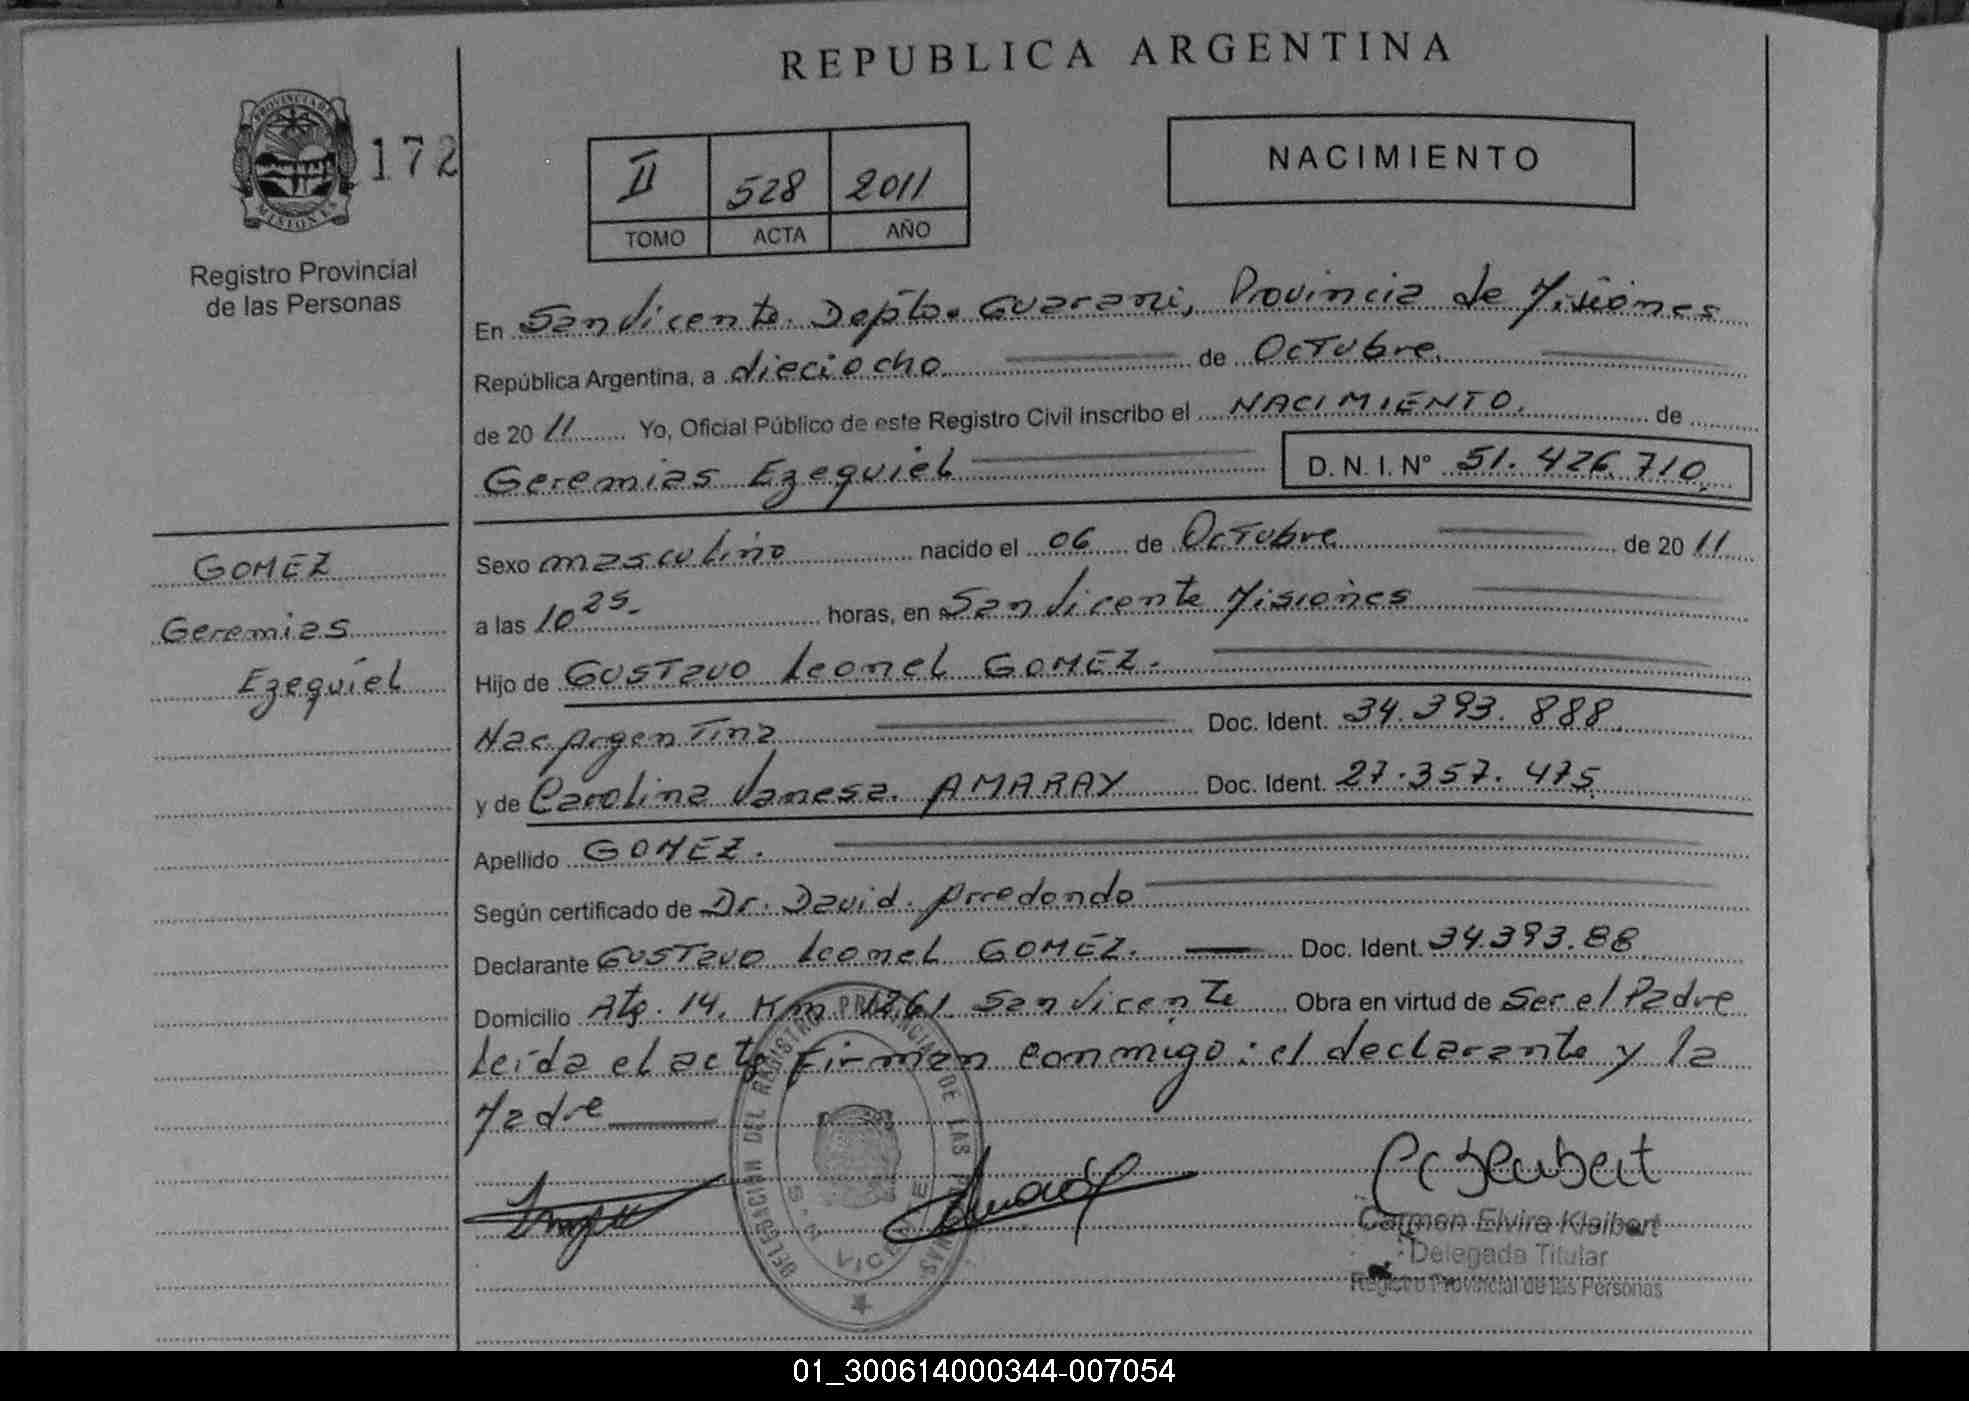 REPUBLICA ARGENTINA
PROVINCIA DE
MISIONES
172
Registro Provincial
de las Personas
II 528 2011
TOMO ACTA AÑO
NACIMIENTO
En San Vicente. Depto. Guarani, Provincia de Misiones
República Argentina, a dieciocho de Octubre.
de 2011 Yo, Oficial Público de este Registro Civil inscribo el NACIMIENTO. de
Geremias Ezequiel D. N. I. N° 51.426.710.
GOMEZ
Geremias
Ezequiel
Sexo masculino nacido el 06 de Octubre de 2011
a las 10 25. horas, en San Vicente Misiones
Hijo de Gustavo Leonel GOMEZ.
Nac Argentina Doc. Ident. 34.393.888.
y de Carolina Vanesa. AMARAY Doc. Ident. 27.357.475
Apellido GOMEZ.
Según certificado de Dr. David. Arredondo
Declarante Gustavo Leonel GOMEZ. Doc. Ident. 34.393.88
Domicilio 14. Km 1261. San Vicente Obra en virtud de Ser el Padre
Leída el acta firman conmigo: el declarante y la
Madre
DELEGACION DEL REGISTRO PROVINCIAL DE LAS PERSONAS
SAN VICENTE
Carmen Elvira Kleibert
Delegada Titular
Registro Provincial de las Personas
01_300614000344-007054